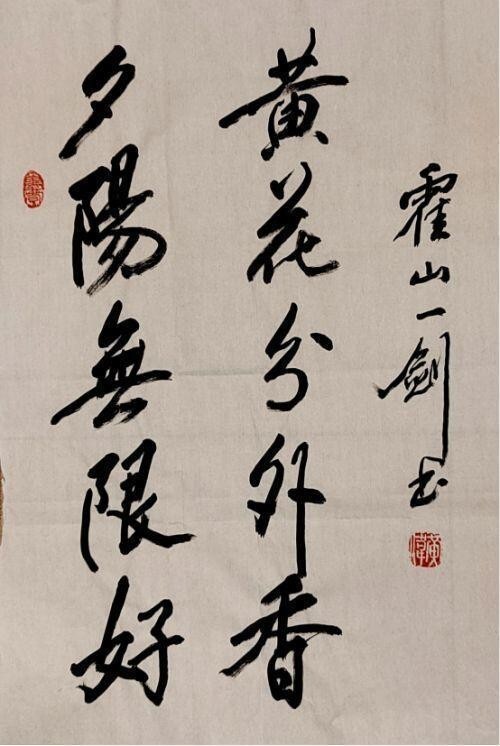 夕陽無限好
黄花分外香
霍山一劍书